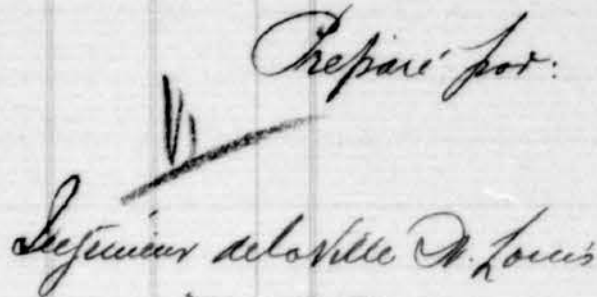 Préparé par:
Ingénieur de la Ville St. Louis